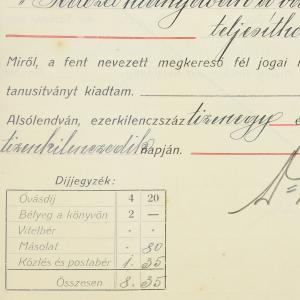 teljesíthe
Miről, a fent nevezett megkereső fél jogai
tanusitványt kiadtam.
Alsólendván, ezerkilenczszáz tizenegy
tizenkilenczedik napján.
Díjjegyzék:
Óvásdíj 4 20
Bélyeg a könyvön 2 —
Vitelbér . .
Másolat . 80
Közlés és postabér 1. 35
Összesen 8. 35